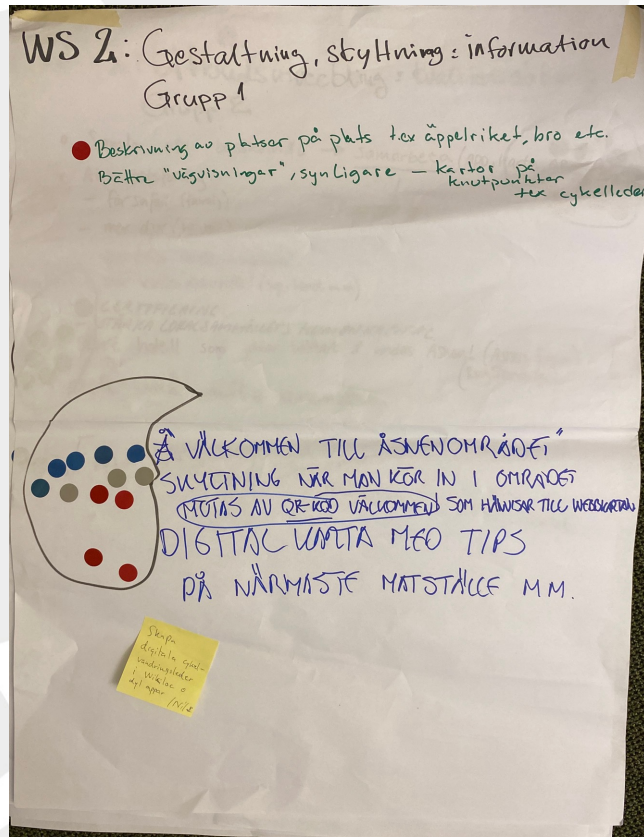 WS 2: Gestaltning, skyltning: information
Grupp 1
Beskrivning av platser på plats t.ex äppelriket, bro etc.
Bättre "vägvisningar", synligare – kartor på
knutpunkter
tex cykelleder
Å VÄLKOMMEN TILL ÅSNENOMRÅDET"
SKYLTNING NÄR MAN KÖR IN I OMRÅDET
MÖTAS AV QR-KOD VÄLKOMMEN SOM HÄNVISAR TILL WEBBKARTAN
DIGITAL KARTA MED TIPS
PÅ NÄRMASTE MATSTÄLLE MM.
Skapa
digitala
vandringsleder
i Wikiloc o
dyl appar
/Nils